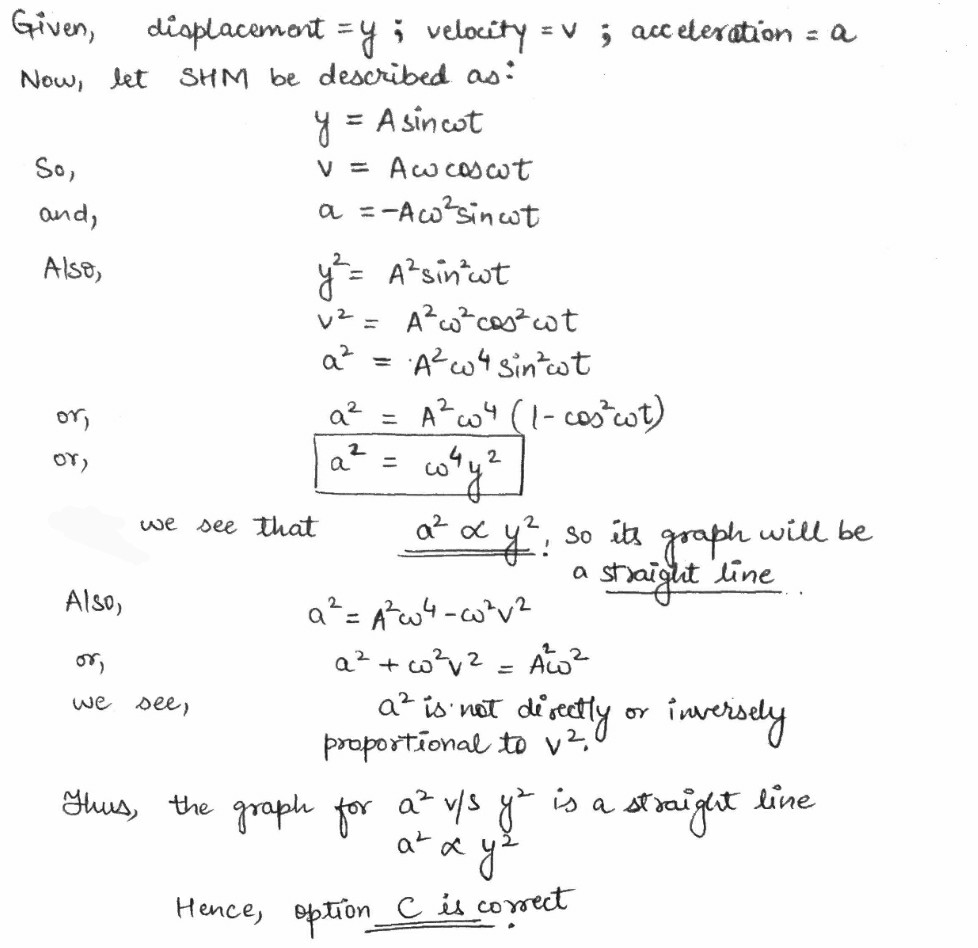 Given, displacement = y ; velocity = v ; acceleration = a
Now, let SHM be described as:
y = A sin ωt
So, v = Aω cos ωt
and, a = -Aω² sin ωt
Also, y² = A² sin² ωt
v² = A² ω² cos² ωt
a² = A² ω⁴ sin² ωt
or, a² = A² ω⁴ (1 - cos² ωt)
or, a² = ω⁴ y²
we see that a² ∝ y², so its graph will be
a straight line
Also, a² = A² ω⁴ - ω² v²
or, a² + ω² v² = A² ω²
we see, a² is not directly or inversely
proportional to v².
Thus, the graph for a² v/s y² is a straight line
a² ∝ y²
Hence, option C is correct.